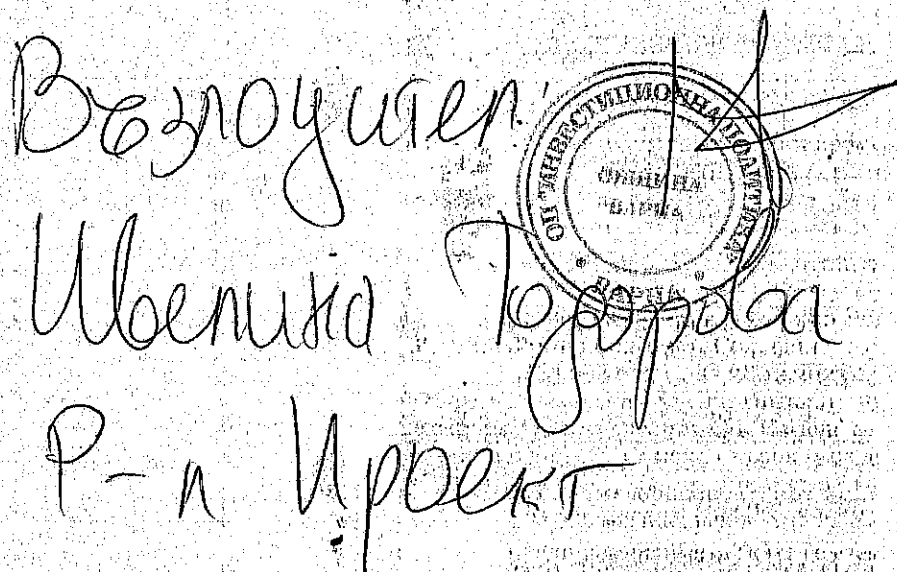 Възложител:
Ивелина Тодорова
Р-л Проект
ОП "ИНВЕСТИЦИОННА ПОЛИТИКА"
ОБЩИНА
ВАРНА
ВАРНА